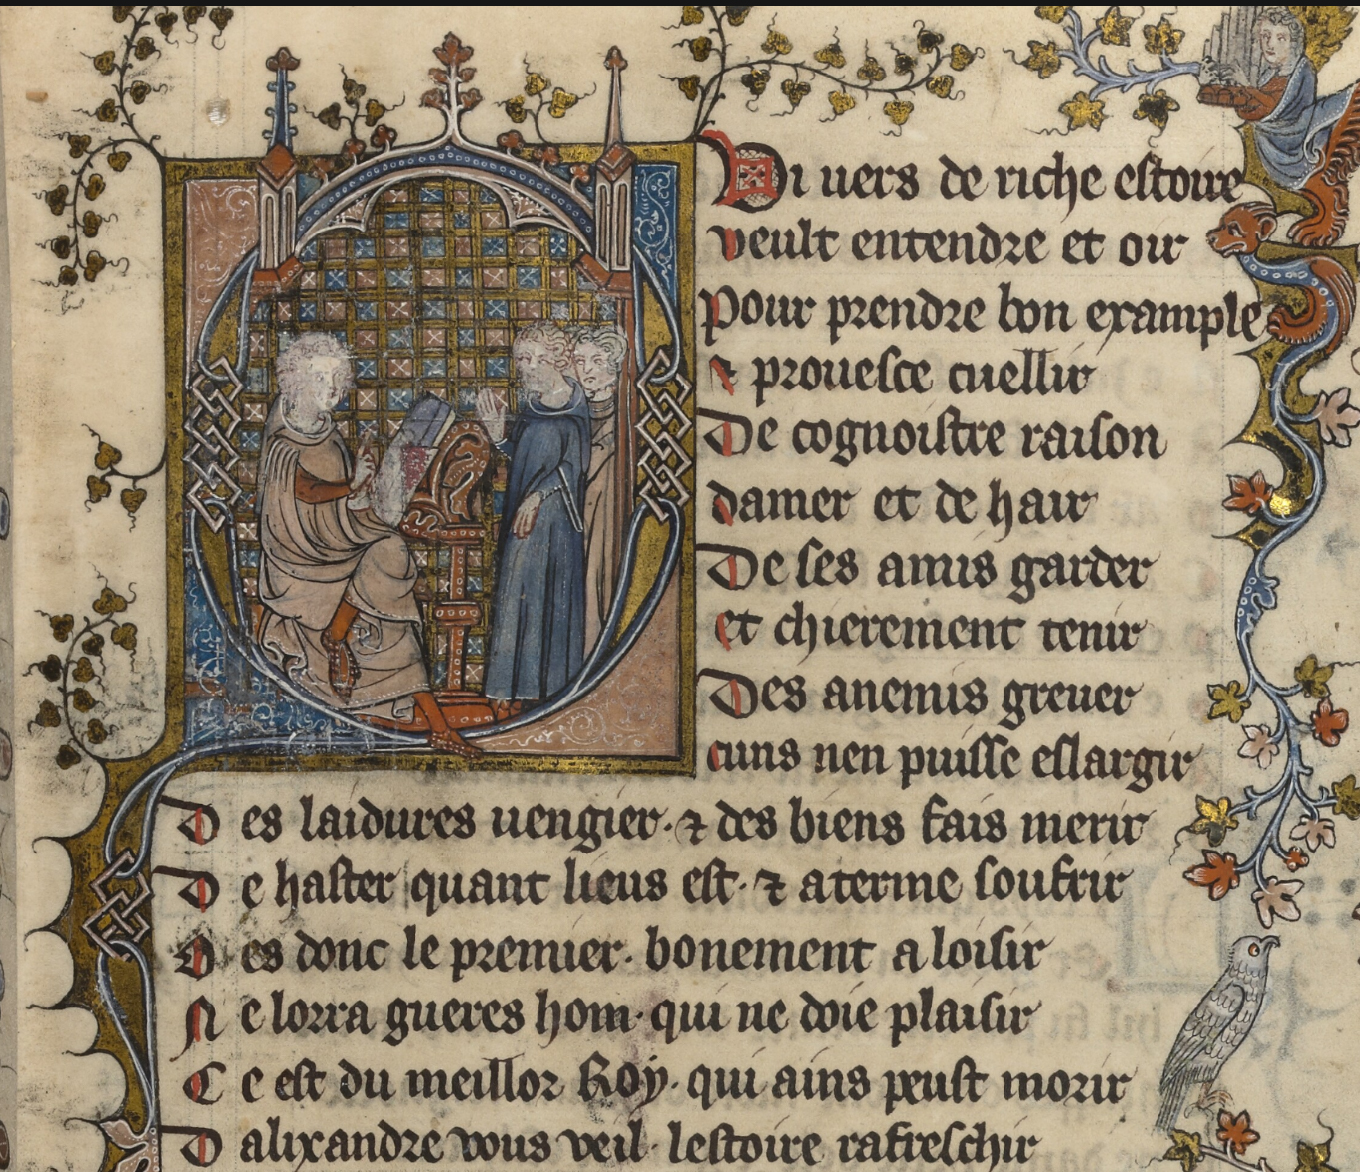 Qi uers de riche estoire
veult entendre et oir
Pour prendre bon example
⁊ prouesce cuellir
De cognoistre raison
damer et de hair
De ses amis garder
et chierement tenir
Des anemis greuer
cuns nen puisse eslargir
Des laidures uengier· ⁊ des biens fais merir
De haster quant lieus est· ⁊ aterme soufrir
Oes donc le premier· bonement a loisir
Ne lorra gueres hom· qui ne doie plaisir
Ce est du meillor Roy· qui ains peust morir
Dalixandre vous veil· lestoire rafreschir